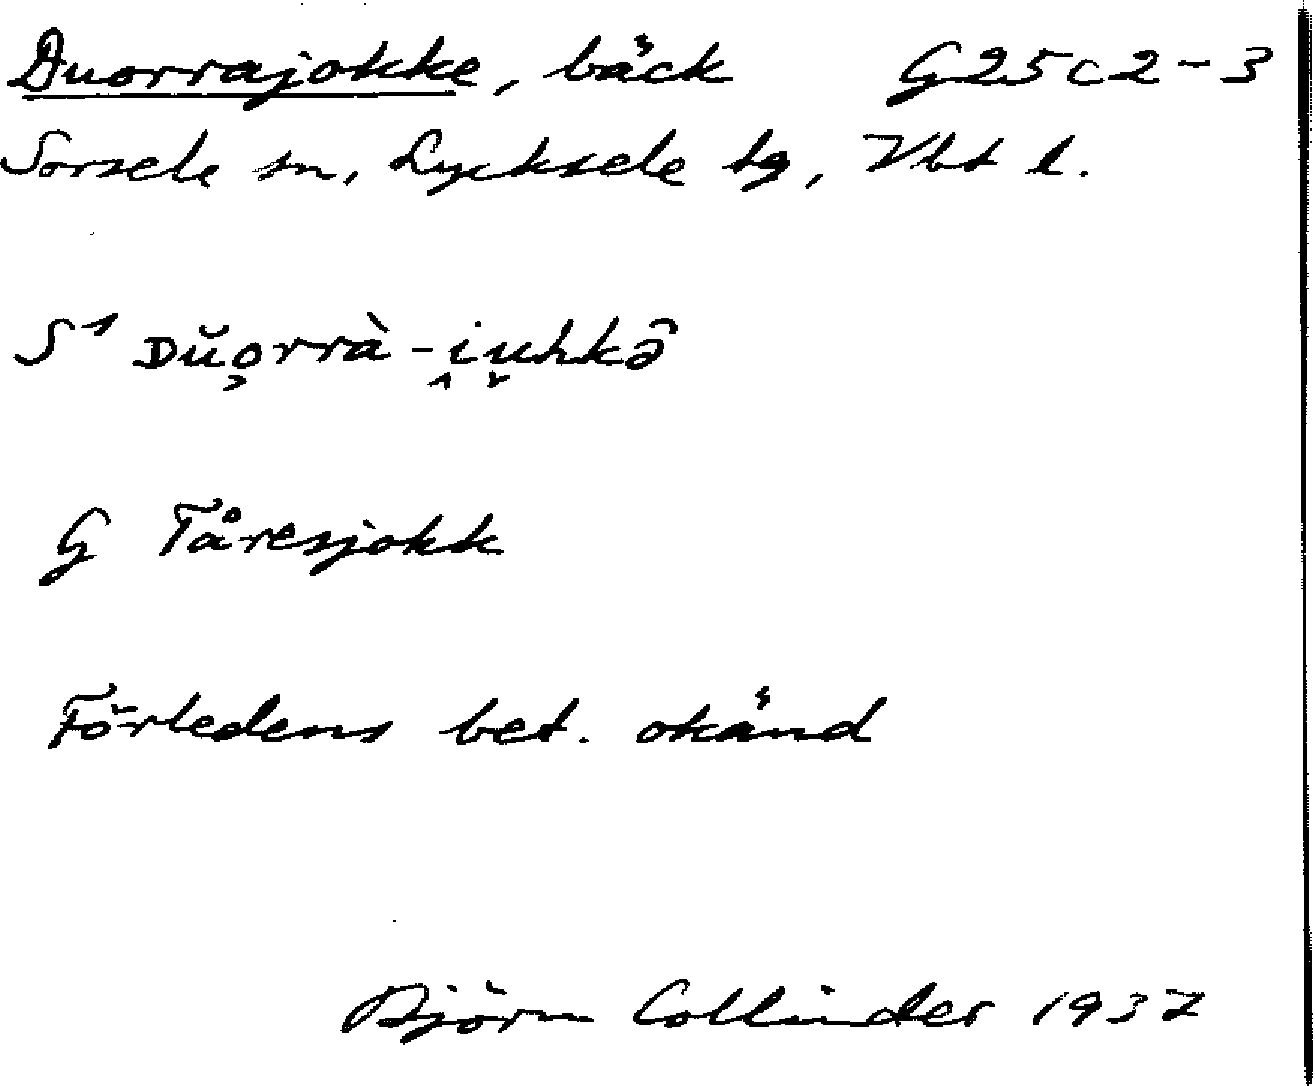 Duorrajokke, bäck G25c2-3
Sorsele sn, Lycksele tg, Vbt l.
S¹ ᴅŭo̹rrà-i̭u̬hkə̑
G Tåresjokk
Förledens bet. okänd
Björn Collinder 1937